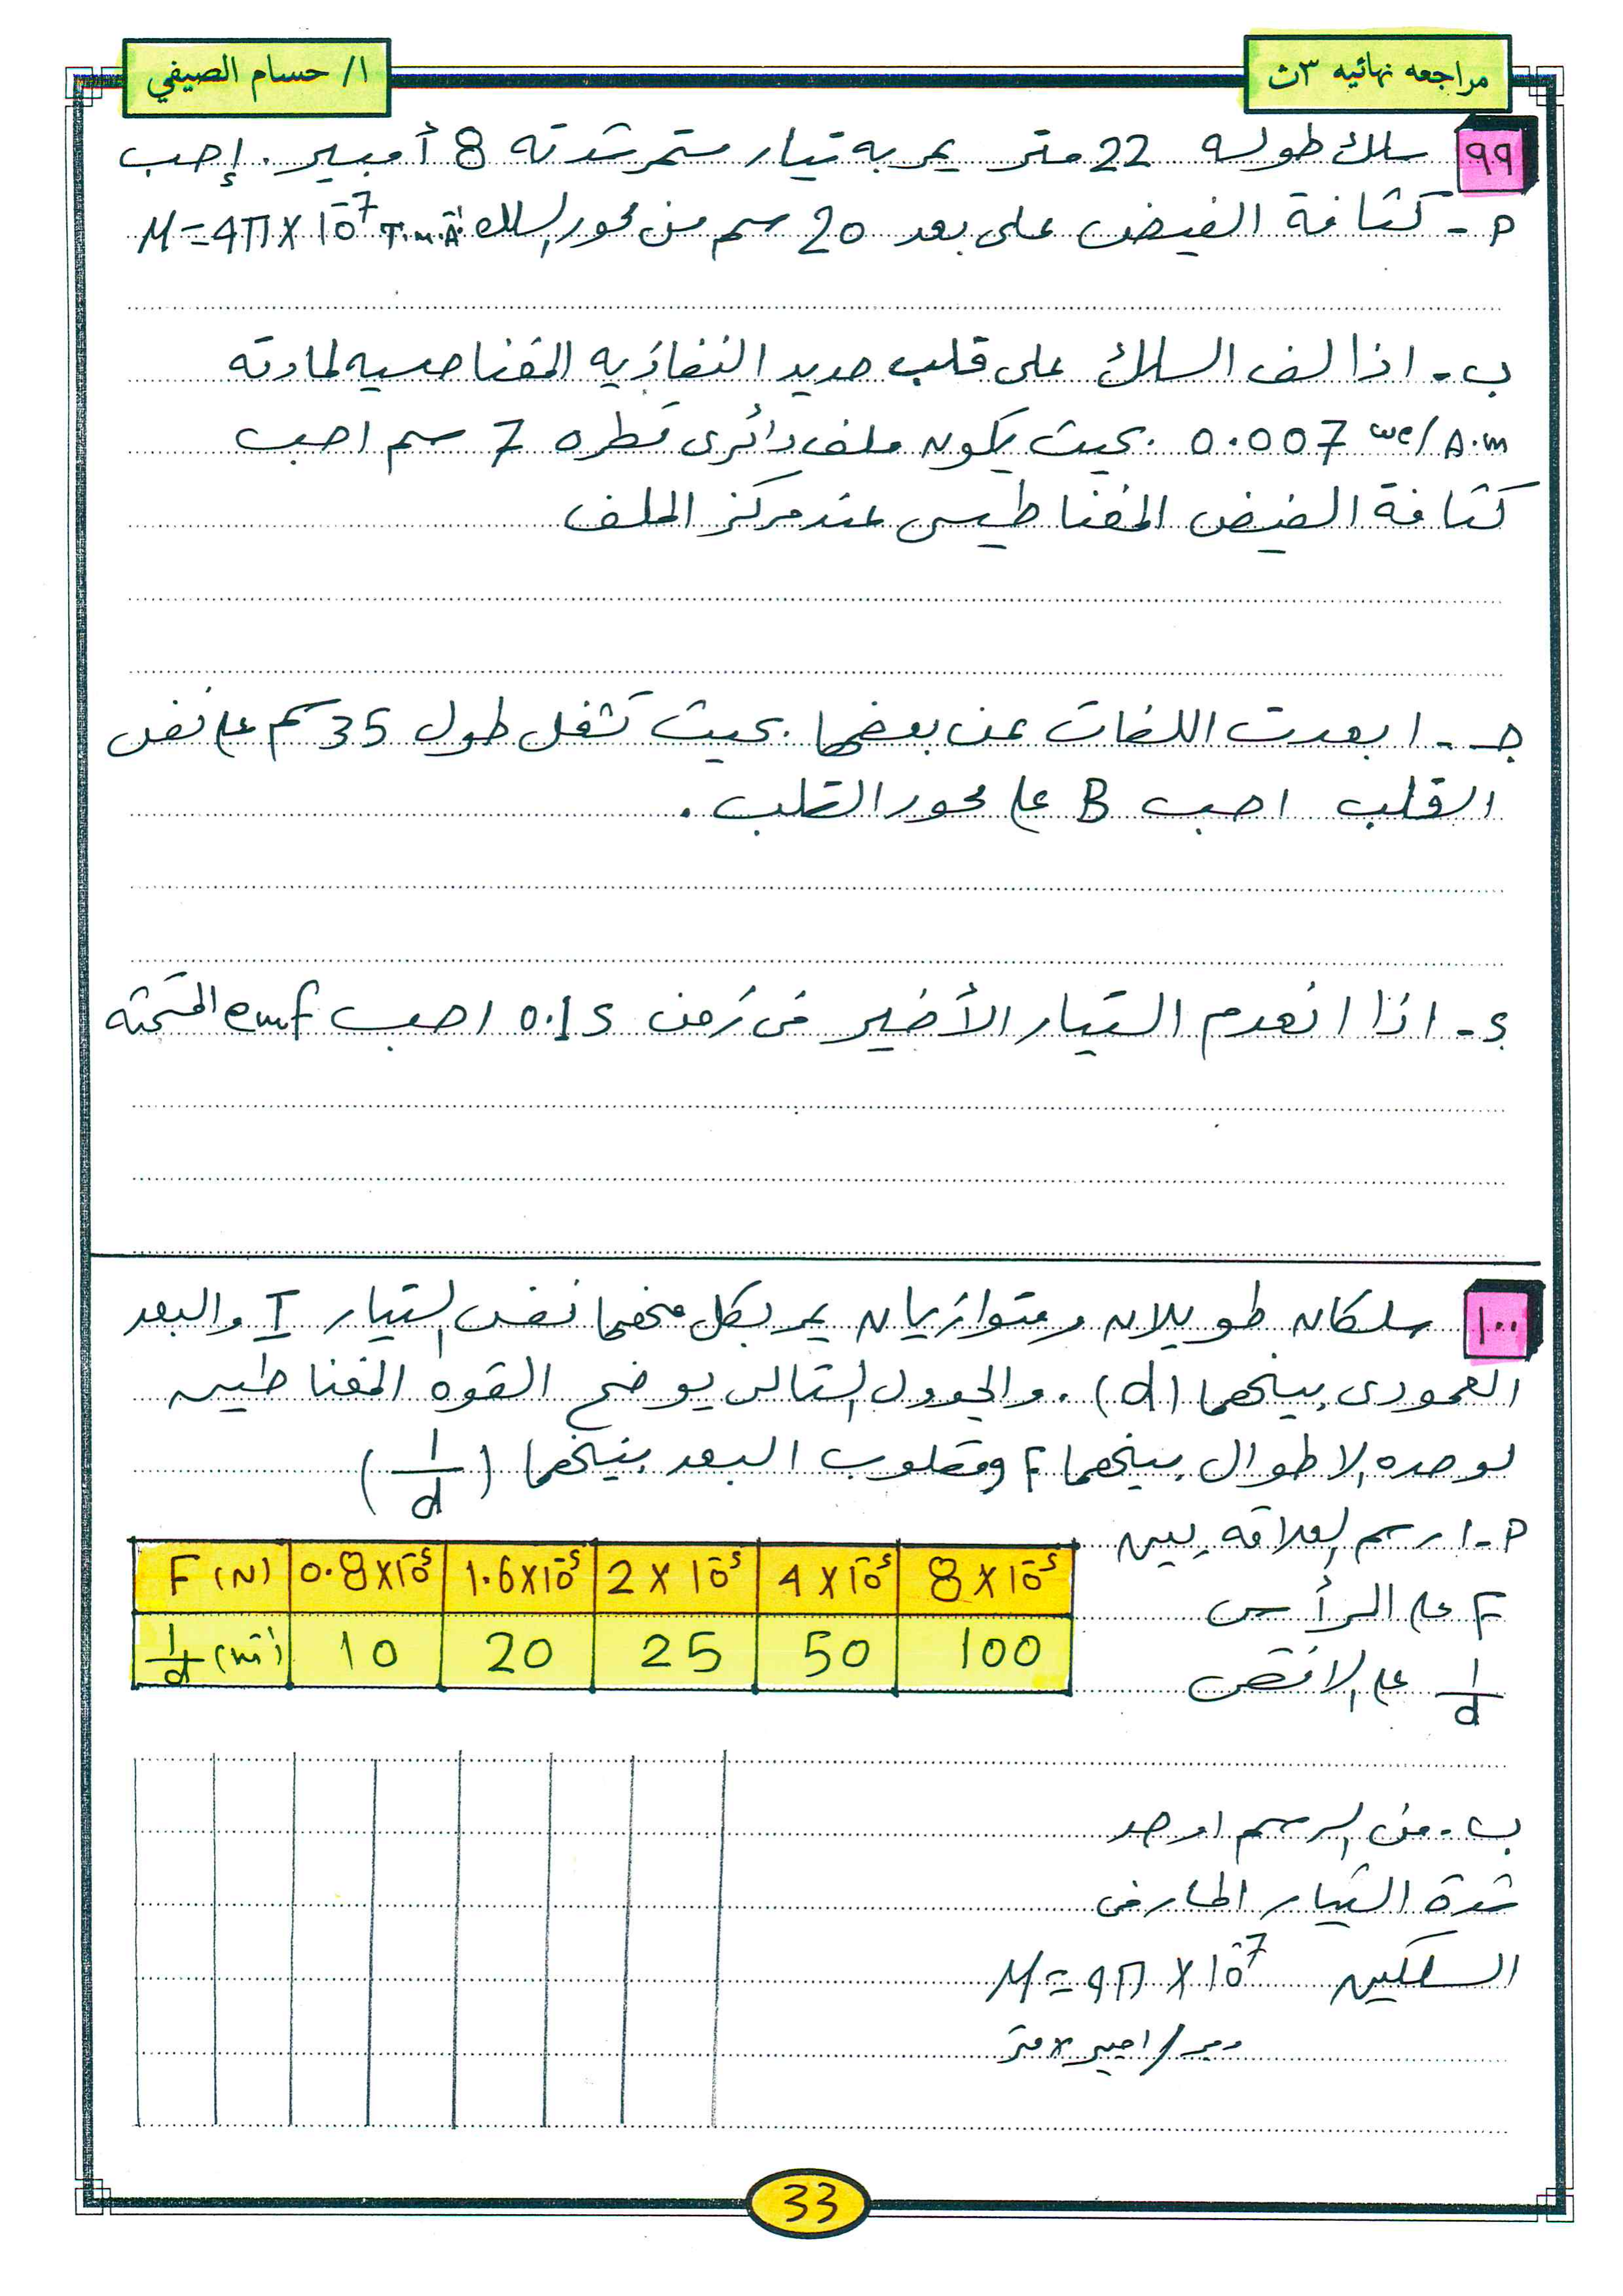 مراجعه نهائيه ٣ث
ا/ حسام الصيفي
٩٩ سلك طوله 22 متر يمر به تيار مستمر شدته 8 أمبير. إحسب
م - كثافة الفيض على بعد 20 سم من محور السلك μ = 4π × 10⁻⁷ T.m.A⁻¹
ب - اذا لف السلك على قلب حديد النفاذيه المغناطيسيه لمادته
0.007 we/A.m بحيث يكون ملف دائرى قطره 7 سم احسب
كثافة الفيض المغناطيسى عند مركز الملف
جـ - ابعدت اللفات عن بعضها بحيث تشغل طول 35 سم على نفس
القلب احسب B على محور القلب .
ء - اذا انعدم التيار الأخير فى زمن 0.1 s احسب emf المستحثه
١٠٠ سلكان طويلان ومتوازيان يمر بكل منهما نفس التيار I والبعد
العمودى بينهما (d) . والجدول التالى يوضح القوه المغناطيسيه
لوحده الاطوال بينهما F ومقلوب البعد بينهما (1/d)
م - ارسم العلاقه بين
F على الرأسى
1/d على الافقى
F (N) 0.8×10⁻⁵ 1.6×10⁻⁵ 2 × 10⁻⁵ 4 × 10⁻⁵ 8 × 10⁻⁵
1/d (m⁻¹) 10 20 25 50 100
ب - من الرسم اوجد
شدة التيار المار فى
السلكين μ = 4π × 10⁻⁷
وبر/امبير × متر
33